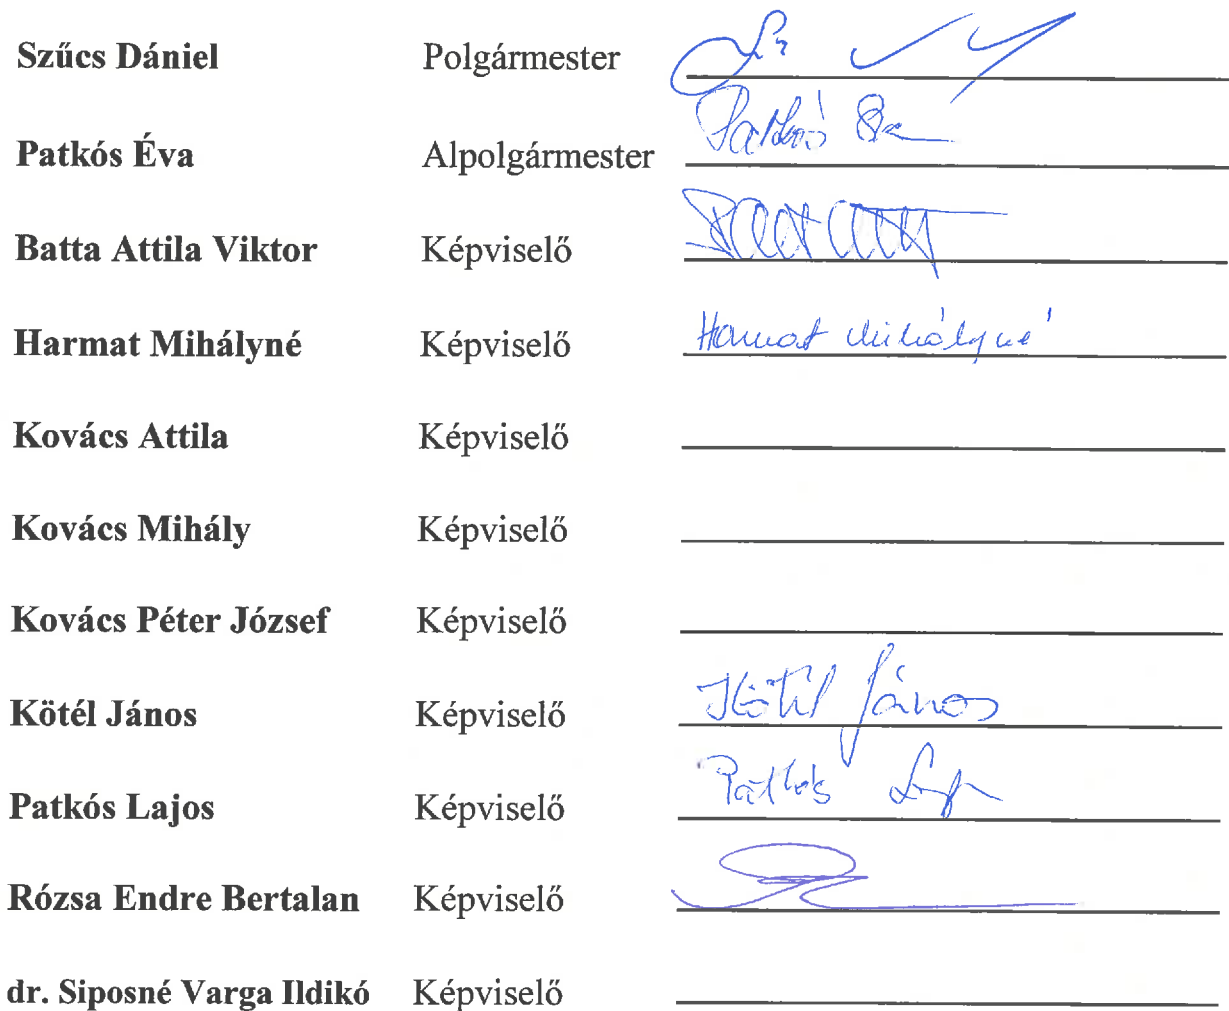 Szűcs Dániel Polgármester
Patkós Éva Alpolgármester Patkós Éva
Batta Attila Viktor Képviselő
Harmat Mihályné Képviselő Harmat Mihályné
Kovács Attila Képviselő
Kovács Mihály Képviselő
Kovács Péter József Képviselő
Kötél János Képviselő Kötél János
Patkós Lajos Képviselő Patkós
Rózsa Endre Bertalan Képviselő
dr. Siposné Varga Ildikó Képviselő